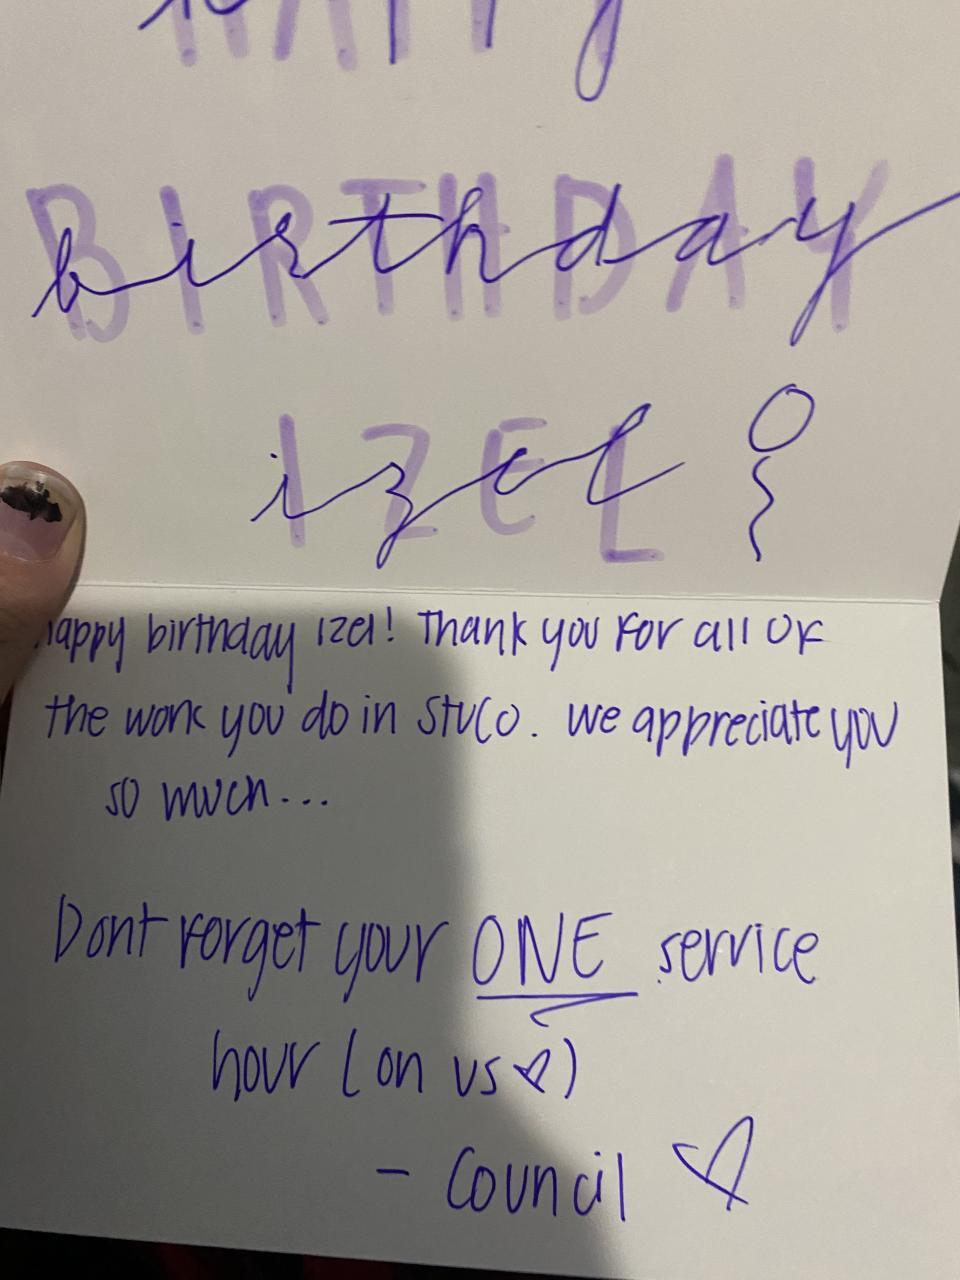 HAPPY
BIRTHDAY
birthday
IZEL
izel
happy birthday Izel! Thank you for all of
the work you do in StuCo. We appreciate you
so much...
Dont forget your ONE service
hour (on us ♡)
- Council ♡